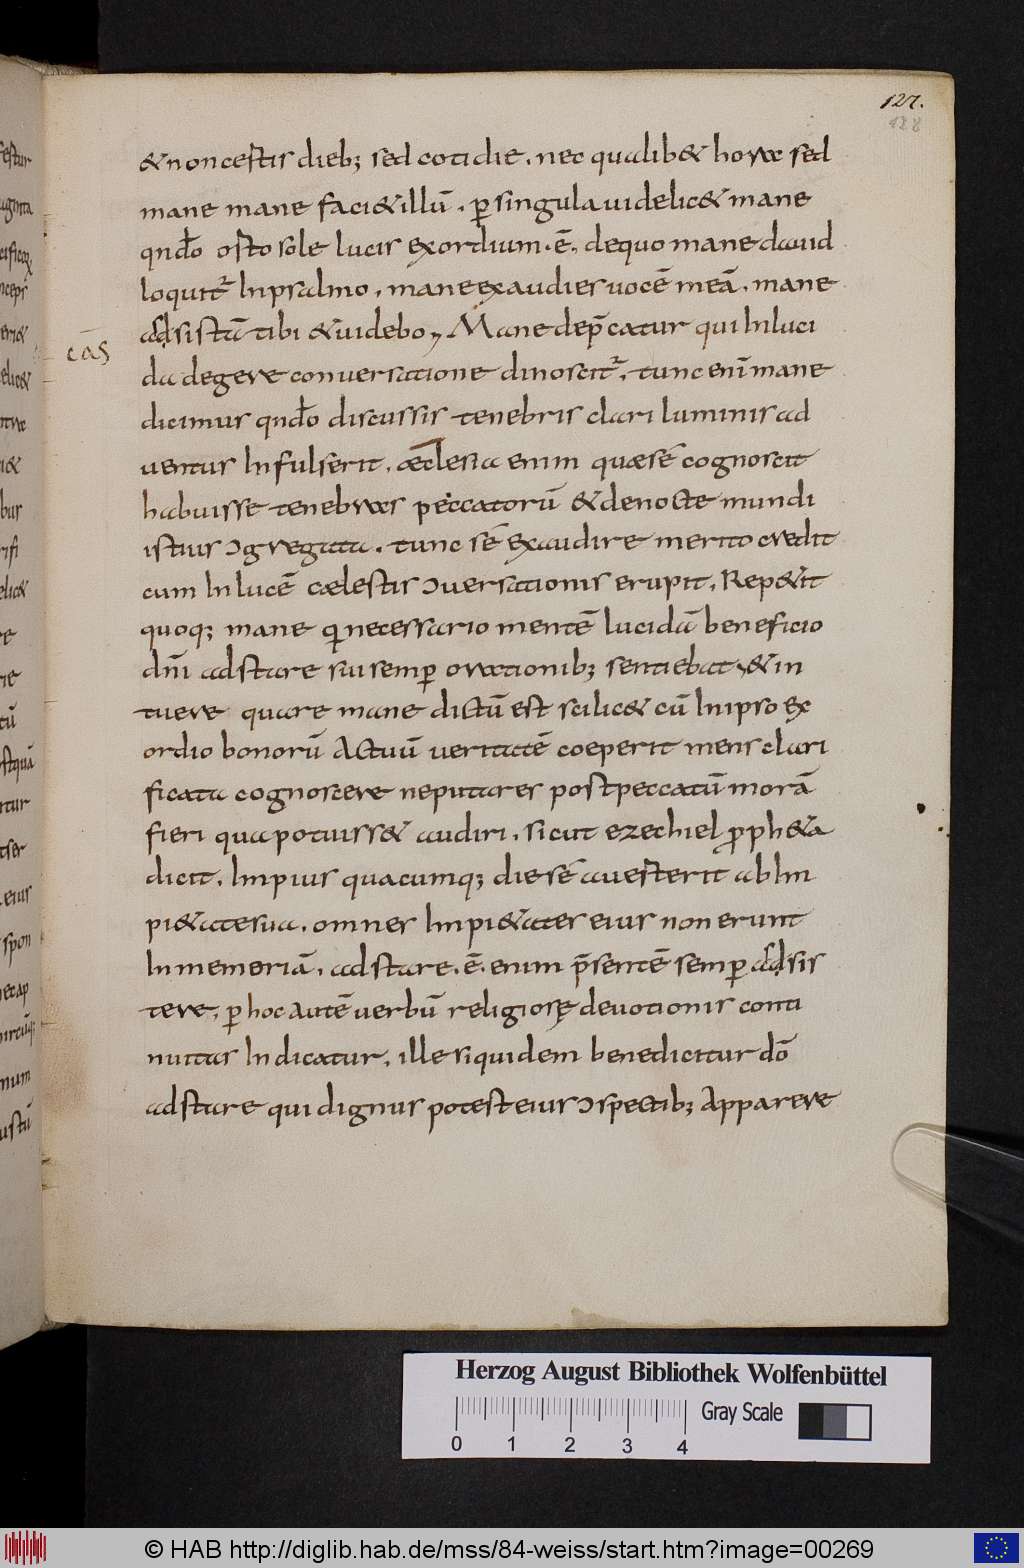 127.
128
& non certis dieb; sed cotidie. nec qualib& hora sed
mane mane faci& illū. p singula uidelic& mane
qndo osto sole lucis exordium. ē. dequo mane dauid
loquit Inpsalmo. mane exaudies uocē meā. mane
adsistā tibi & uidebo, Mane dep̄catur qui Inluci
cas
da degere conuersatione dinoscit. tunc eni mane
dicimus qndo discussis tenebris clari luminis ad
ventus Infulserit. æclesia enim quæ sē cognoscit
habuisse tenebras peccatorū & denocte mundi
istius ɔgregata. tunc sē exaudire merito credit
cum Inlucē cælestis ɔuersationis erupit. Rep&it
quoq; mane qi necessario mentē lucidā beneficio
dn̄i adstare sui semp orationib; sentiebat, & in
tuere quare mane dictū est scilic& cū Inipso ex
ordio bonorū actuū veritatē coeperit mens clari
ficata cognoscere neputares postpeccatū morā
fieri qua potuiss& audiri. sicut ezechiel pph&a
dicit. Impius quacumq; die sē auerterit ab Im
pi&ate sua. omnes Impi&ates eius non erunt
In memoriā. adstare. ē. enim p̄sentē semp adsis
tere, p hoc autē uerbū religiosę deuotionis conti
nuitas Indicatur. ille siquidem benedicitur dō
adstare qui dignus potest eius ɔspectib; Apparere
Herzog August Bibliothek Wolfenbüttel
Gray Scale
0 1 2 3 4
© HAB http://diglib.hab.de/mss/84-weiss/start.htm?image=00269